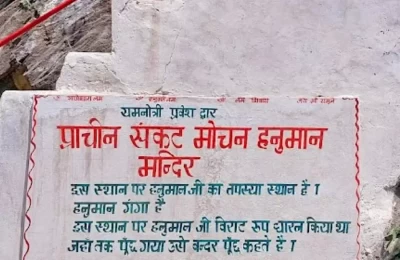 यमनोत्री प्रवेश द्वार
प्राचीन संकट मोचन हनुमान
मन्दिर
इस स्थान पर हनुमान जी का तपस्या स्थान है।
हनुमान गंगा है
इस स्थान पर हनुमान जी विराट रूप धारन किया था
जहाँ तक पूँछ गया उसे बन्दर पूँछ कहते है।